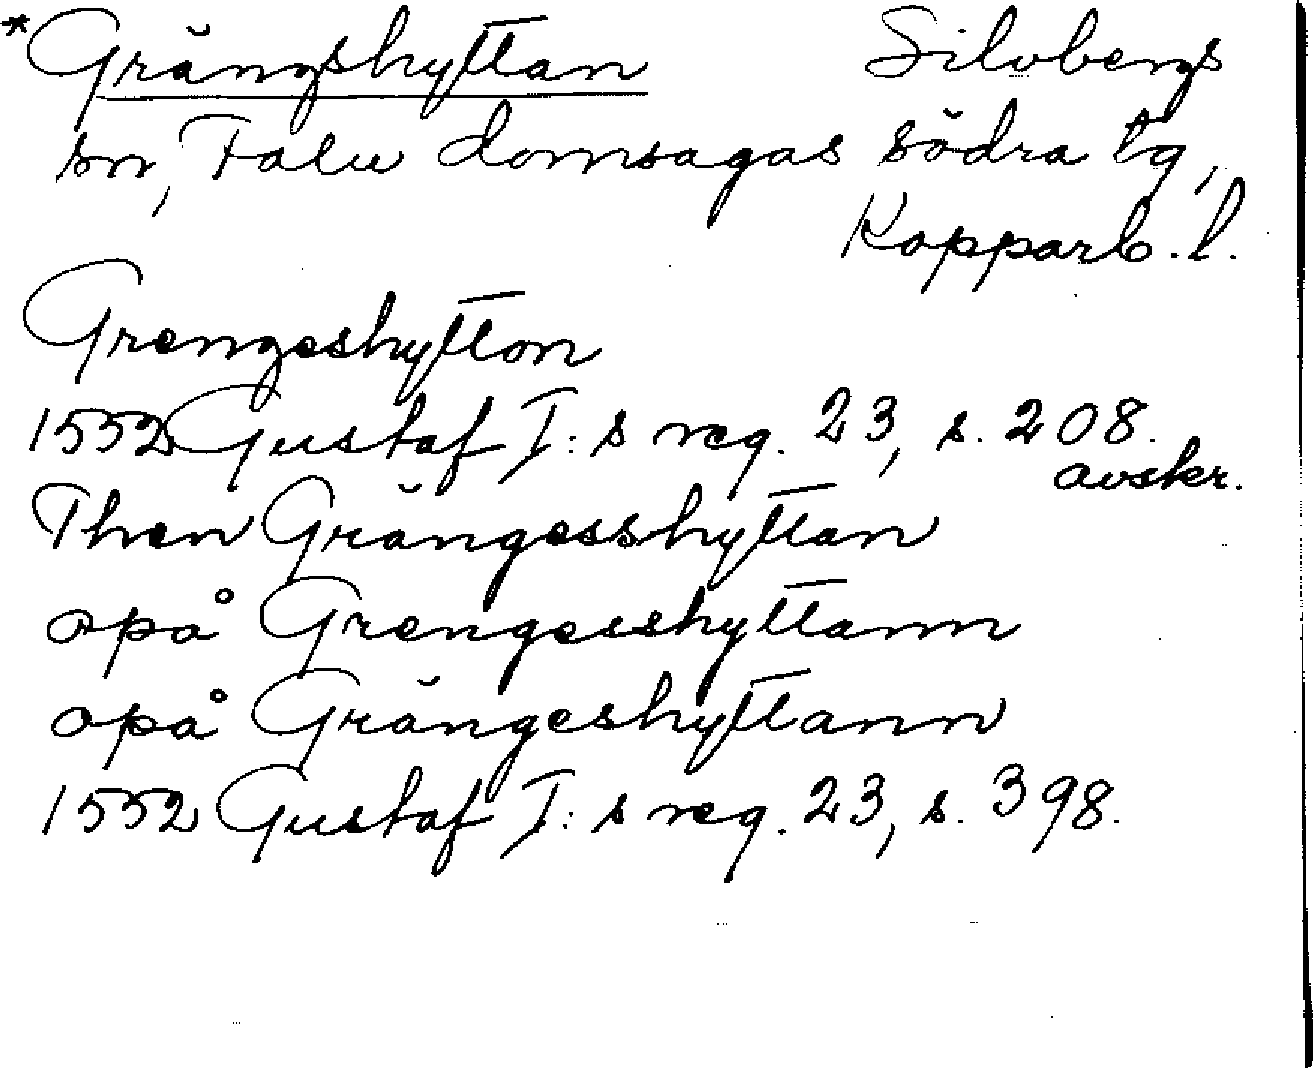 *Grängshyttan Silvbergs
sn, Falu domsagas södra tg,
Kopparb. l.
Grengeshytton
1552 Gustaf I:s reg. 23, s. 208.
avskr.
Then Grängesshyttan
opå Grengesshyttann
opå Grängeshyttann
1552 Gustaf I:s reg. 23, s. 398.